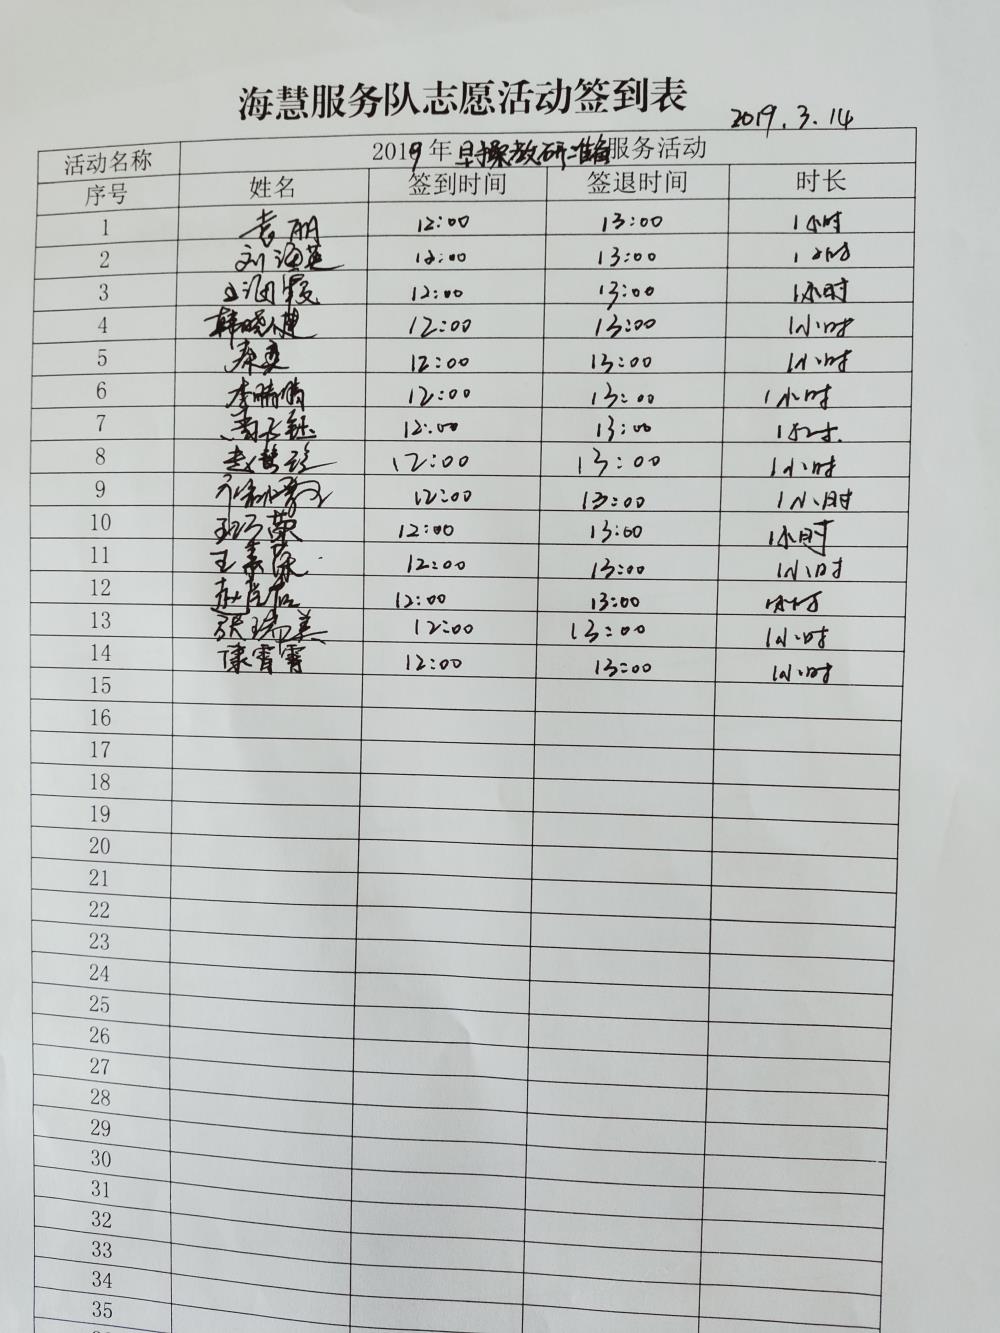 海慧服务队志愿活动签到表
2019.3.14
活动名称 2019年早操教研准备服务活动
序号 姓名 签到时间 签退时间 时长
1 袁丽 12:00 13:00 1小时
2 刘海英 12:00 13:00 1小时
3 12:00 13:00 1小时
4 韩晓健 12:00 13:00 1小时
5 秦奕 12:00 13:00 1小时
6 李晴晴 12:00 13:00 1小时
7 12:00 13:00 1小时
8 赵慧 12:00 13:00 1小时
9 12:00 13:00 1小时
10 12:00 13:00 1小时
11 王 12:00 13:00 1小时
12 赵 12:00 13:00 1小时
13 张瑞美 12:00 13:00 1小时
14 康霄霄 12:00 13:00 1小时
15
16
17
18
19
20
21
22
23
24
25
26
27
28
29
30
31
32
33
34
35